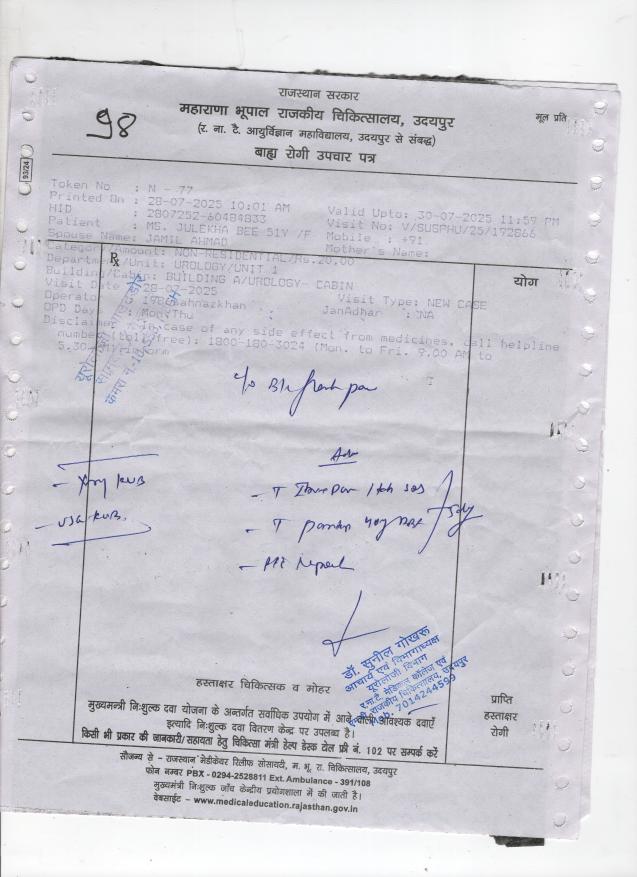 राजस्थान सरकार
महाराणा भूपाल राजकीय चिकित्सालय, उदयपुर
मूल प्रति
98
(र. ना. टै. आयुर्विज्ञान महाविद्यालय, उदयपुर से संबद्ध)
बाह्य रोगी उपचार पत्र
93/24
Token No : N - 77
Printed On : 28-07-2025 10:01 AM Valid Upto: 30-07-2025 11:59 PM
HID : 2807252-60484833 Visit No: V/SUSPHU/25/192866
Patient : MS. JULEKHA BEE 51Y /F Mobile : +91
Spouse Name: JAMIL AHMAD Mother's Name:
Category/Amount: NON-RESIDENTIAL/Rs.20.00
Department/Unit: UROLOGY/UNIT 1
Building/Cabin: BUILDING A/UROLOGY- CABIN
Visit Date : 28-07-2025 Visit Type: NEW CASE
Operator : JanAdhar : NA
OPD Day : Mon/Thu
Disclaimer : In case of any side effect from medicines, call helpline
number (toll free): 1800-180-3024 (Mon. to Fri. 9.00 AM to
Rx
योग
c/o B/L flank pain
Adv
- Xray KUB
- USG KUB.
5day
हस्ताक्षर चिकित्सक व मोहर
डॉ. सुनील गोखरू
आचार्य एवं विभागाध्यक्ष
यूरोलॉजी विभाग
र.ना.टै. मेडिकल कॉलेज एवं
राजकीय चिकित्सालय, उदयपुर
7014244599
प्राप्ति
हस्ताक्षर
रोगी
मुख्यमंत्री निःशुल्क दवा योजना के अन्तर्गत सर्वाधिक उपयोग में आने वाली आवश्यक दवाएँ
इत्यादि निःशुल्क दवा वितरण केन्द्र पर उपलब्ध है।
किसी भी प्रकार की जानकारी/सहायता हेतु चिकित्सा मंत्री हेल्प डेस्क टोल फ्री नं. 102 पर सम्पर्क करें
सौजन्य से - राजस्थान मेडीकेयर रिलीफ सोसायटी, म. भू. रा. चिकित्सालय, उदयपुर
फोन नम्बर PBX - 0294-2528811 Ext. Ambulance - 391/108
मुख्यमंत्री निःशुल्क जाँच केन्द्रीय प्रयोगशाला में की जाती है।
वेबसाईट - www.medicaleducation.rajasthan.gov.in